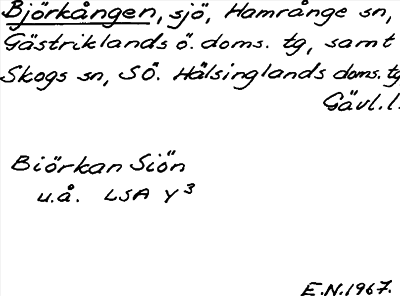 Björkången, sjö, Hamrånge sn,
Gästriklands ö. doms. tg, samt
Skogs sn, SÖ. Hälsinglands doms. tg
Gävl.l.
Biörkan Siön
u.å. LSA Y³
E.N.1967.